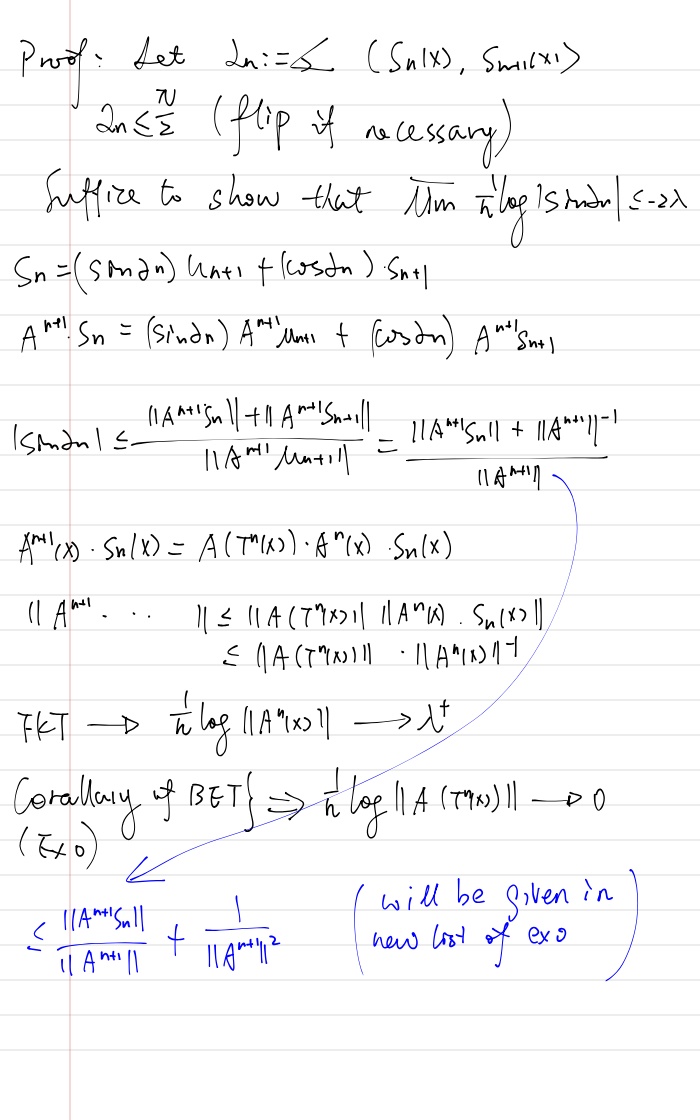 Proof: Let αn := ∡ (Sn(x), Sn+1(x))
αn ≤ π/2 (flip if necessary)
Suffice to show that l̅i̅m̅ 1/n log |sin αn| ≤ -2λ
Sn = (sin αn) un+1 + (cos αn) · Sn+1
A^{n+1} · Sn = (sin αn) A^{n+1} un+1 + (cos αn) A^{n+1} Sn+1
|sin αn| ≤ (||A^{n+1} Sn|| + ||A^{n+1} Sn+1||) / ||A^{n+1} un+1|| = (||A^{n+1} Sn|| + ||A^{n+1}||^{-1}) / ||A^{n+1}||
A^{n+1}(x) · Sn(x) = A(T^n(x)) · A^n(x) · Sn(x)
||A^{n+1} · · · || ≤ ||A(T^n(x))|| ||A^n(x) · Sn(x)||
≤ ||A(T^n(x))|| · ||A^n(x)||^{-1}
FKT → 1/n log ||A^n(x)|| → λ^+
Corallary of BET} ⇒ 1/n log ||A(T^n(x))|| → 0
(Exo)
≤ ||A^{n+1} Sn|| / ||A^{n+1}|| + 1 / ||A^{n+1}||^2
(will be given in
new list of exo)